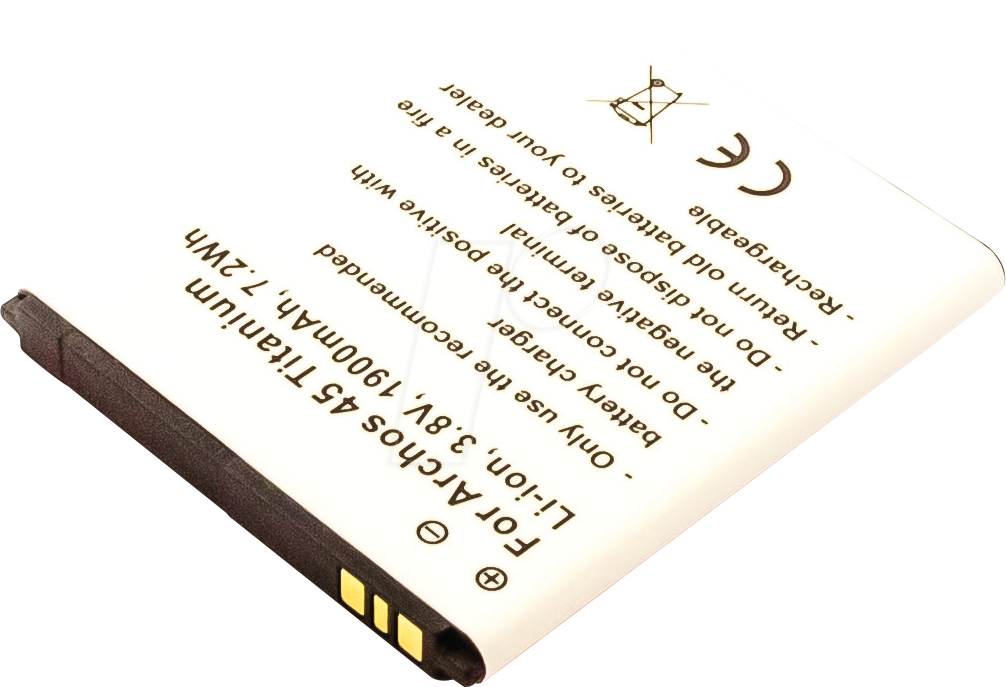 For Archos 45 Titanium
Li-ion, 3.8V, 1900mAh, 7.2Wh
- Only use the recommended
battery charger
- Do not connect the positive with
the negative terminal
- Do not dispose of batteries in a fire
- Return old batteries to your dealer
- Rechargeable
CE